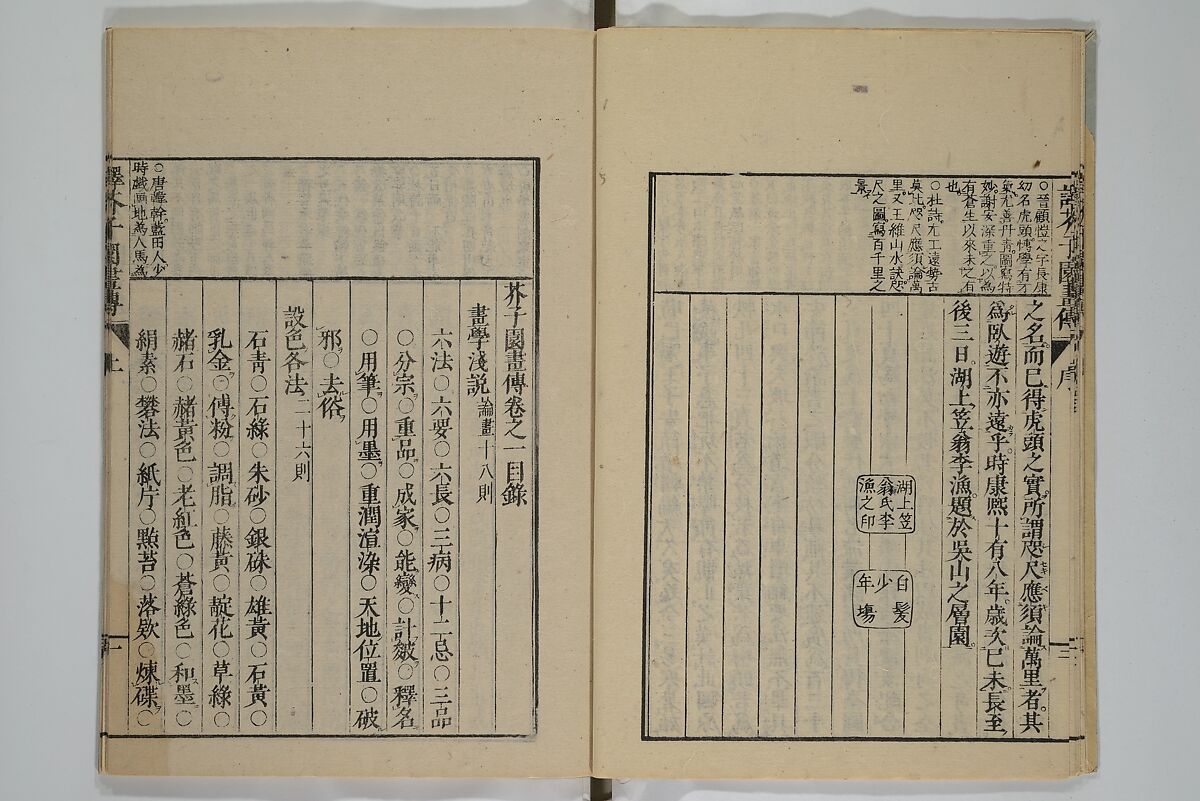 ○晉顧愷之字長康
幼名虎頭愽學有才
氣尤善丹青圖寫特
妙謝安深重之以為
有蒼生以來未之有
也
○杜詩尤工遠勢古
莫比咫尺應須論萬
里又王維山水訣咫
尺之圖寫百千里之
景
之名而已得虎頭之實所謂咫尺應須論萬里者其
為臥遊不亦遠乎時康熙十有八年歲次已未長至
後三日湖上笠翁李漁題於吳山之層園
湖上笠
翁氏李
漁之印
白髮
少
年塲
序
三
○唐韓幹藍田人少
時戯画地為人馬為
芥子園畫傳卷之一目錄
畫學淺説 論畫十八則
六法○六要○六長○三病○十二忌○三品
○分宗○重品○成家○能變○計皴○釋名
○用筆○用墨○重潤渲染○天地位置○破
邪○去俗
設色各法 二十六則
石青○石綠○朱砂○銀硃○雄黃○石黃○
乳金○傅粉○調脂○藤黃○靛花○草綠○
赭石○赭黃色○老紅色○蒼綠色○和墨○
絹素○礬法○紙片○㸃苔○落欵○煉碟○
譯芥子園畫傳
上
一